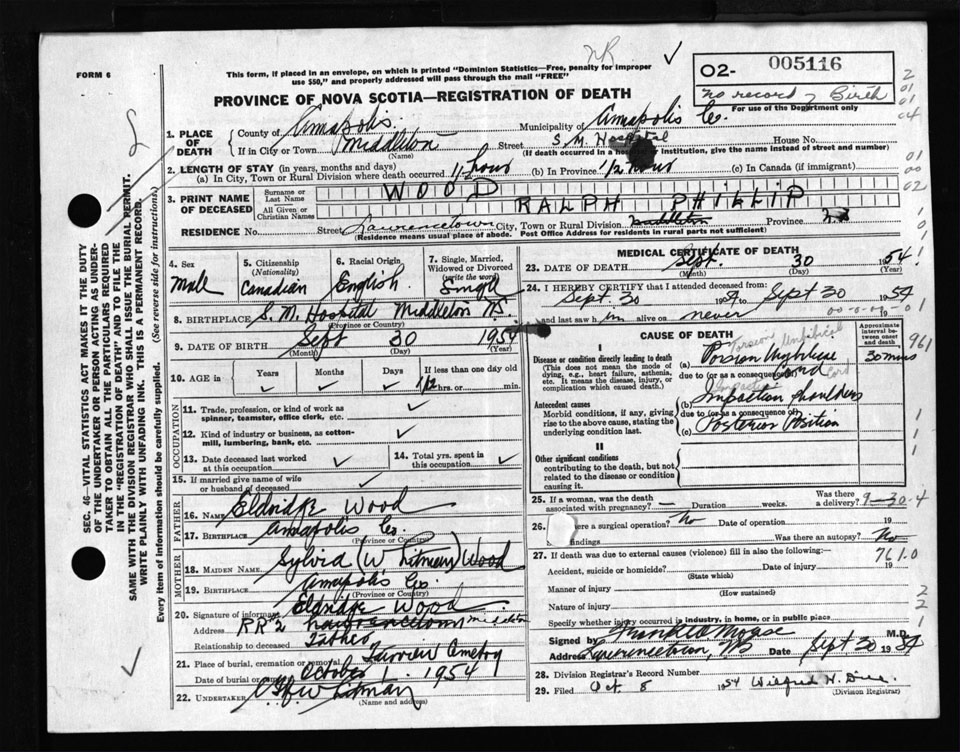 FORM 6
NR
This form, if placed in an envelope, on which is printed "Dominion Statistics—Free, penalty for improper
use $50," and properly addressed will pass through the mail "FREE"
02- 005116
no record of Birth
For use of the Department only
PROVINCE OF NOVA SCOTIA—REGISTRATION OF DEATH
1. PLACE OF DEATH
County of Annapolis. Municipality of Annapolis Co.
If in City or Town Middleton (Name) Street S. M. Hospital House No.
(If death occurred in a hospital institution, give the name instead of street and number)
2. LENGTH OF STAY (in years, months and days)
(a) In City, Town or Rural Division where death occurred 1/2 hour (b) In Province 1/2 hour (c) In Canada (if immigrant)
3. PRINT NAME OF DECEASED
Surname or Last Name WOOD
All Given or Christian Names RALPH PHILLIP
RESIDENCE No. Street Lawrencetown City, Town or Rural Division Middleton Province N.S.
(Residence means usual place of abode. Post Office Address for residents in rural parts not sufficient)
4. Sex Male
5. Citizenship (Nationality) Canadian
6. Racial Origin English
7. Single, Married, Widowed or Divorced (write the word) Single
8. BIRTHPLACE S. M. Hospital Middleton NS.
(Province or Country)
9. DATE OF BIRTH Sept 30 1954
(Month) (Day) (Year)
10. AGE in Years Months Days If less than one day old
1/2 hrs. or min.
OCCUPATION
11. Trade, profession, or kind of work as
spinner, teamster, office clerk, etc.
12. Kind of industry or business, as cotton-
mill, lumbering, bank, etc.
13. Date deceased last worked
at this occupation
14. Total yrs. spent in
this occupation
15. If married give name of wife
or husband of deceased
FATHER
16. Name Eldridge Wood
17. Birthplace Annapolis Co.
(Province or Country)
MOTHER
18. Maiden Name Sylvia (Whitman) Wood
19. Birthplace Annapolis Co.
(Province or Country)
20. Signature of informant Eldridge Wood
Address RR 2 Lawrencetown Middleton
Relationship to deceased Father
21. Place of burial, cremation or removal Fairview Cemetery
Date of burial October 1, 1954
22. UNDERTAKER Whitman
(Name and address)
MEDICAL CERTIFICATE OF DEATH
23. DATE OF DEATH Sept. 30 1954
(Month) (Day) (Year)
24. I HEREBY CERTIFY that I attended deceased from:
Sept 30 1954 to Sept 30 1954
and last saw him alive on never 19
CAUSE OF DEATH
Approximate interval between onset and death
I
Disease or condition directly leading to death
(This does not mean the mode of
dying, e.g., heart failure, asthenia,
etc. It means the disease, injury, or
complication which caused death.)
(a) Torsion Umbilical Cord 30 mins
due to (or as a consequence of)
Torsion Umbilical Cord
961
Antecedent causes
Morbid conditions, if any, giving
rise to the above cause, stating the
underlying condition last.
(b) Impaction Shoulders
due to (or as a consequence of)
(c) Posterior Position
II
Other significant conditions
contributing to the death, but not
related to the disease or condition
causing it.
25. If a woman, was the death
associated with pregnancy? — Duration weeks. Was there a delivery?
9-30-4
26. Was there a surgical operation? No Date of operation 19
findings Was there an autopsy? No
27. If death was due to external causes (violence) fill in also the following:—
761.0
Accident, suicide or homicide? Date of injury 19
(State which)
Manner of injury
(How sustained)
Nature of injury
Specify whether injury occurred in industry, in home, or in public place
Signed by Frank E Morse M.D.
Address Lawrencetown, NS Date Sept 30 1954
28. Division Registrar's Record Number
29. Filed Oct 8 1954 Wilfred H.
(Division Registrar)
SEC. 46—VITAL STATISTICS ACT MAKES IT THE DUTY
OF THE UNDERTAKER OR PERSON ACTING AS UNDER-
TAKER TO OBTAIN ALL THE PARTICULARS REQUIRED
IN THE "REGISTRATION OF DEATH" AND TO FILE THE
SAME WITH THE DIVISION REGISTRAR WHO SHALL ISSUE THE BURIAL PERMIT.
WRITE PLAINLY WITH UNFADING INK. THIS IS A PERMANENT RECORD.
Every item of information should be carefully supplied. (See reverse side for instructions.)